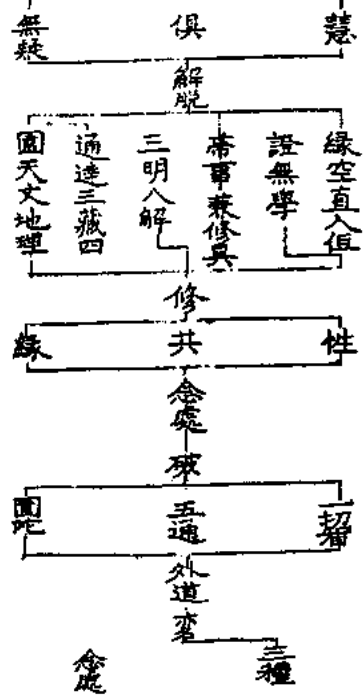 慧
俱
無疑
解脱
緣空直入但
證無學
帶事兼修具
三明八解
通達三藏四
圍天文地理
修
性
共
緣
念處
破
一智
五通
圍陀
外道
三種
念處